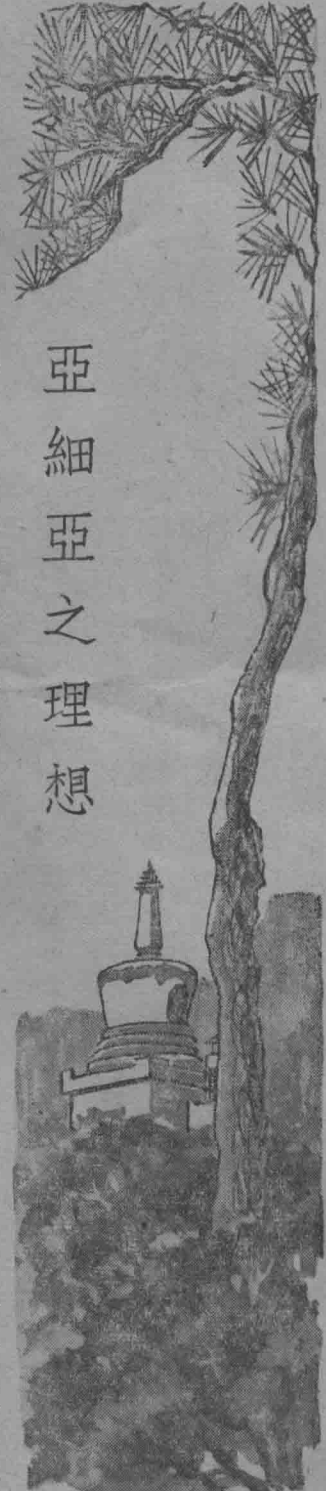 亞細亞之理想